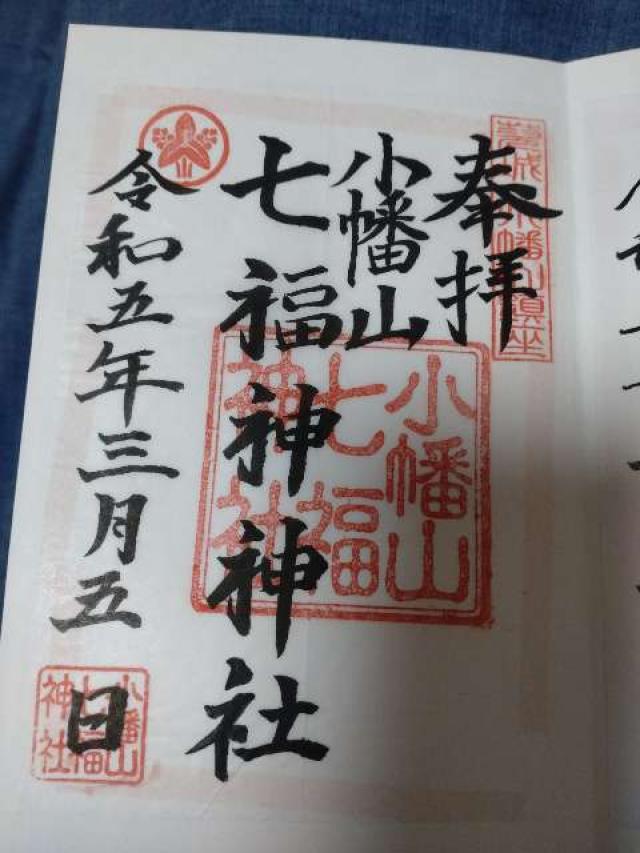 奉拝
小幡山
七福神神社
令和五年三月五日
小幡山
七福
神社
小幡山
七福
神社